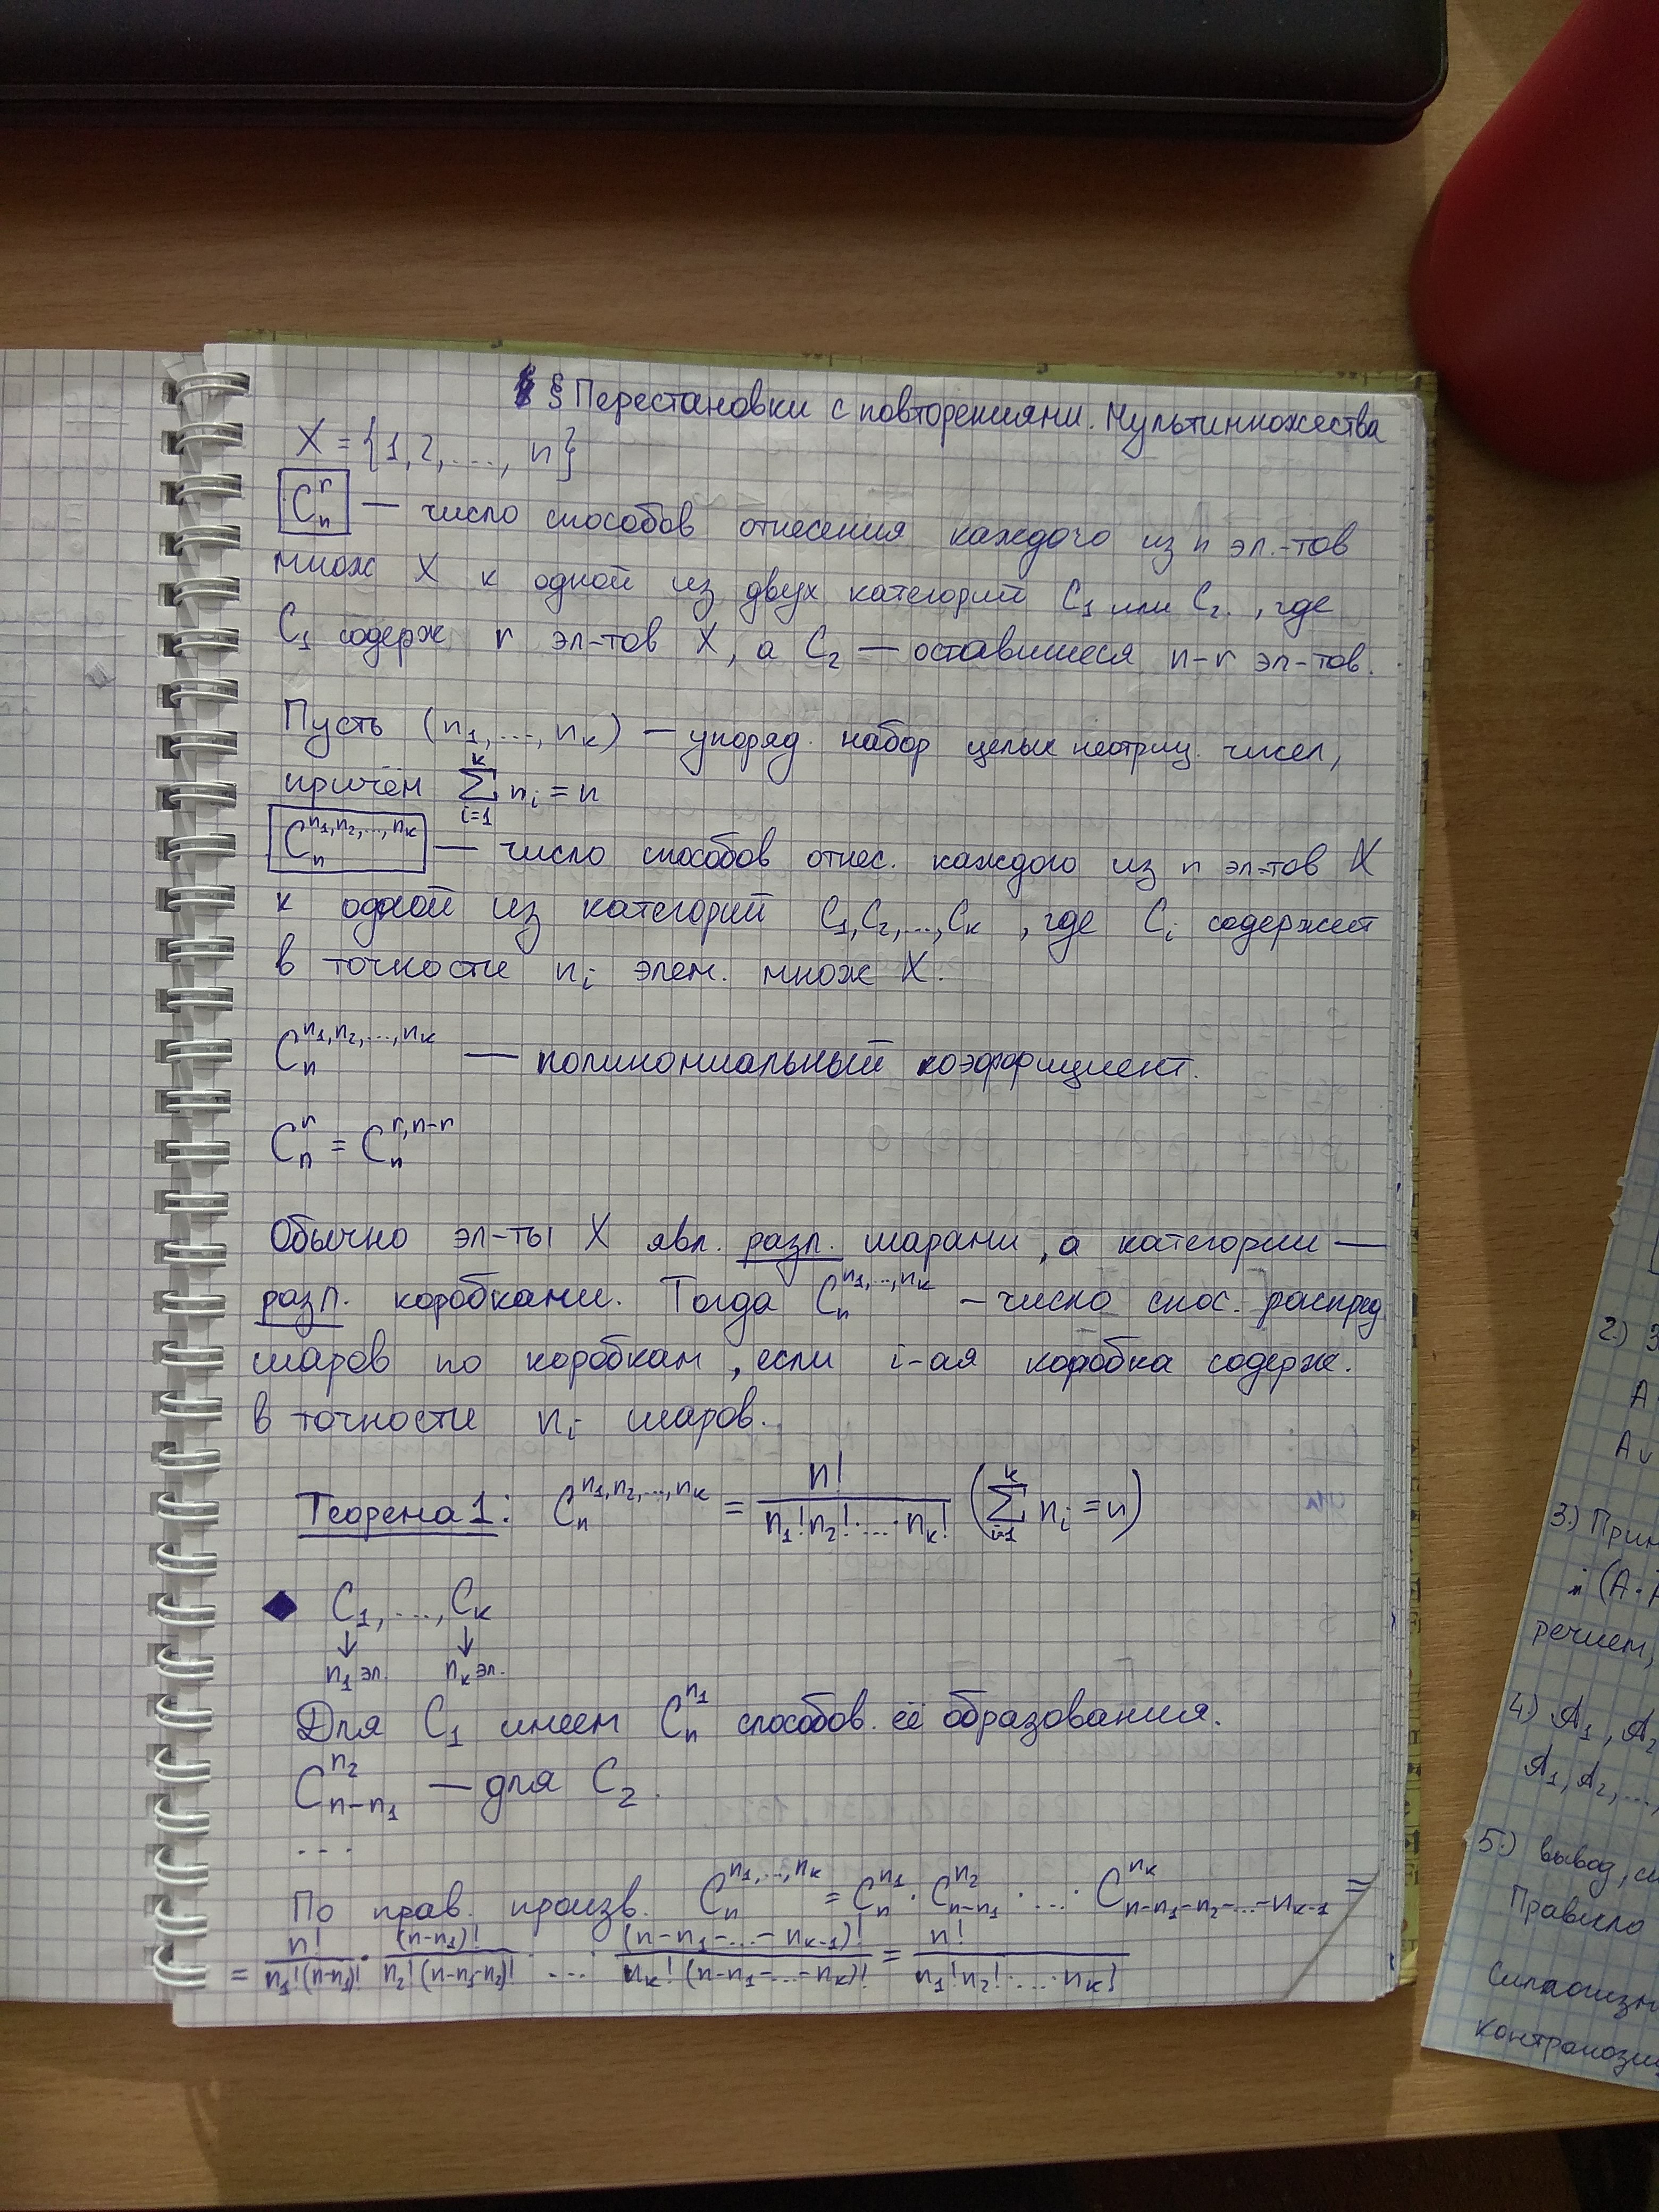 § Перестановки с повторениями. Мультимножества
X = {1,2,...., n}
C_n^r — число способов отнесения каждого из n эл.-тов
множ X к одной из двух категорий C_1 или C_2., где
C_1 содерж r эл-тов X, а C_2 — оставшиеся n-r эл-тов.
Пусть (n_1,...,n_k) — упоряд. набор целых неотриц. чисел,
причём ∑_{i=1}^{k} n_i = n
C_n^{n_1,n_2,...,n_k} — число способов отнес. каждого из n эл-тов X
к одной из категорий C_1,C_2,...,C_k, где C_i содержит
в точности n_i элем. множ X.
C_n^{n_1,n_2,...,n_k} — полиномиальный коэффициент.
C_n^r = C_n^{r,n-r}
Обычно эл-ты X явл. разл. шарами, а категории —
разл. коробками. Тогда C_n^{n_1,...,n_k} - число спос. распред
шаров по коробкам, если i-ая коробка содерж.
в точности n_i шаров.
Теорема 1: C_n^{n_1,n_2,...,n_k} = n! / (n_1!n_2!·...·n_k!) (∑_{i=1}^{k} n_i = n)
◆ C_1,....,C_k
↓ ↓
n_1 эл. n_k эл.
Для C_1 имеем C_n^{n_1} способов. её образования.
C_{n-n_1}^{n_2} — для C_2.
...
По прав. произв. C_n^{n_1,...,n_k} = C_n^{n_1} · C_{n-n_1}^{n_2} · ... · C_{n-n_1-n_2-...-n_{k-1}}^{n_k} =
= n! / (n_1!(n-n_1)!) · (n-n_1)! / (n_2!(n-n_1-n_2)!) ... (n-n_1-...-n_{k-1})! / (n_k!(n-n_1-...-n_k)!) = n! / (n_1!n_2!·...·n_k!)
2.) З
A
A v
3.) Прин
(A·
речием,
4.) A_1, A_2
A_1, A_2,...,
5.) вывод, сл
Правило
Силлогизм
контрапозиц